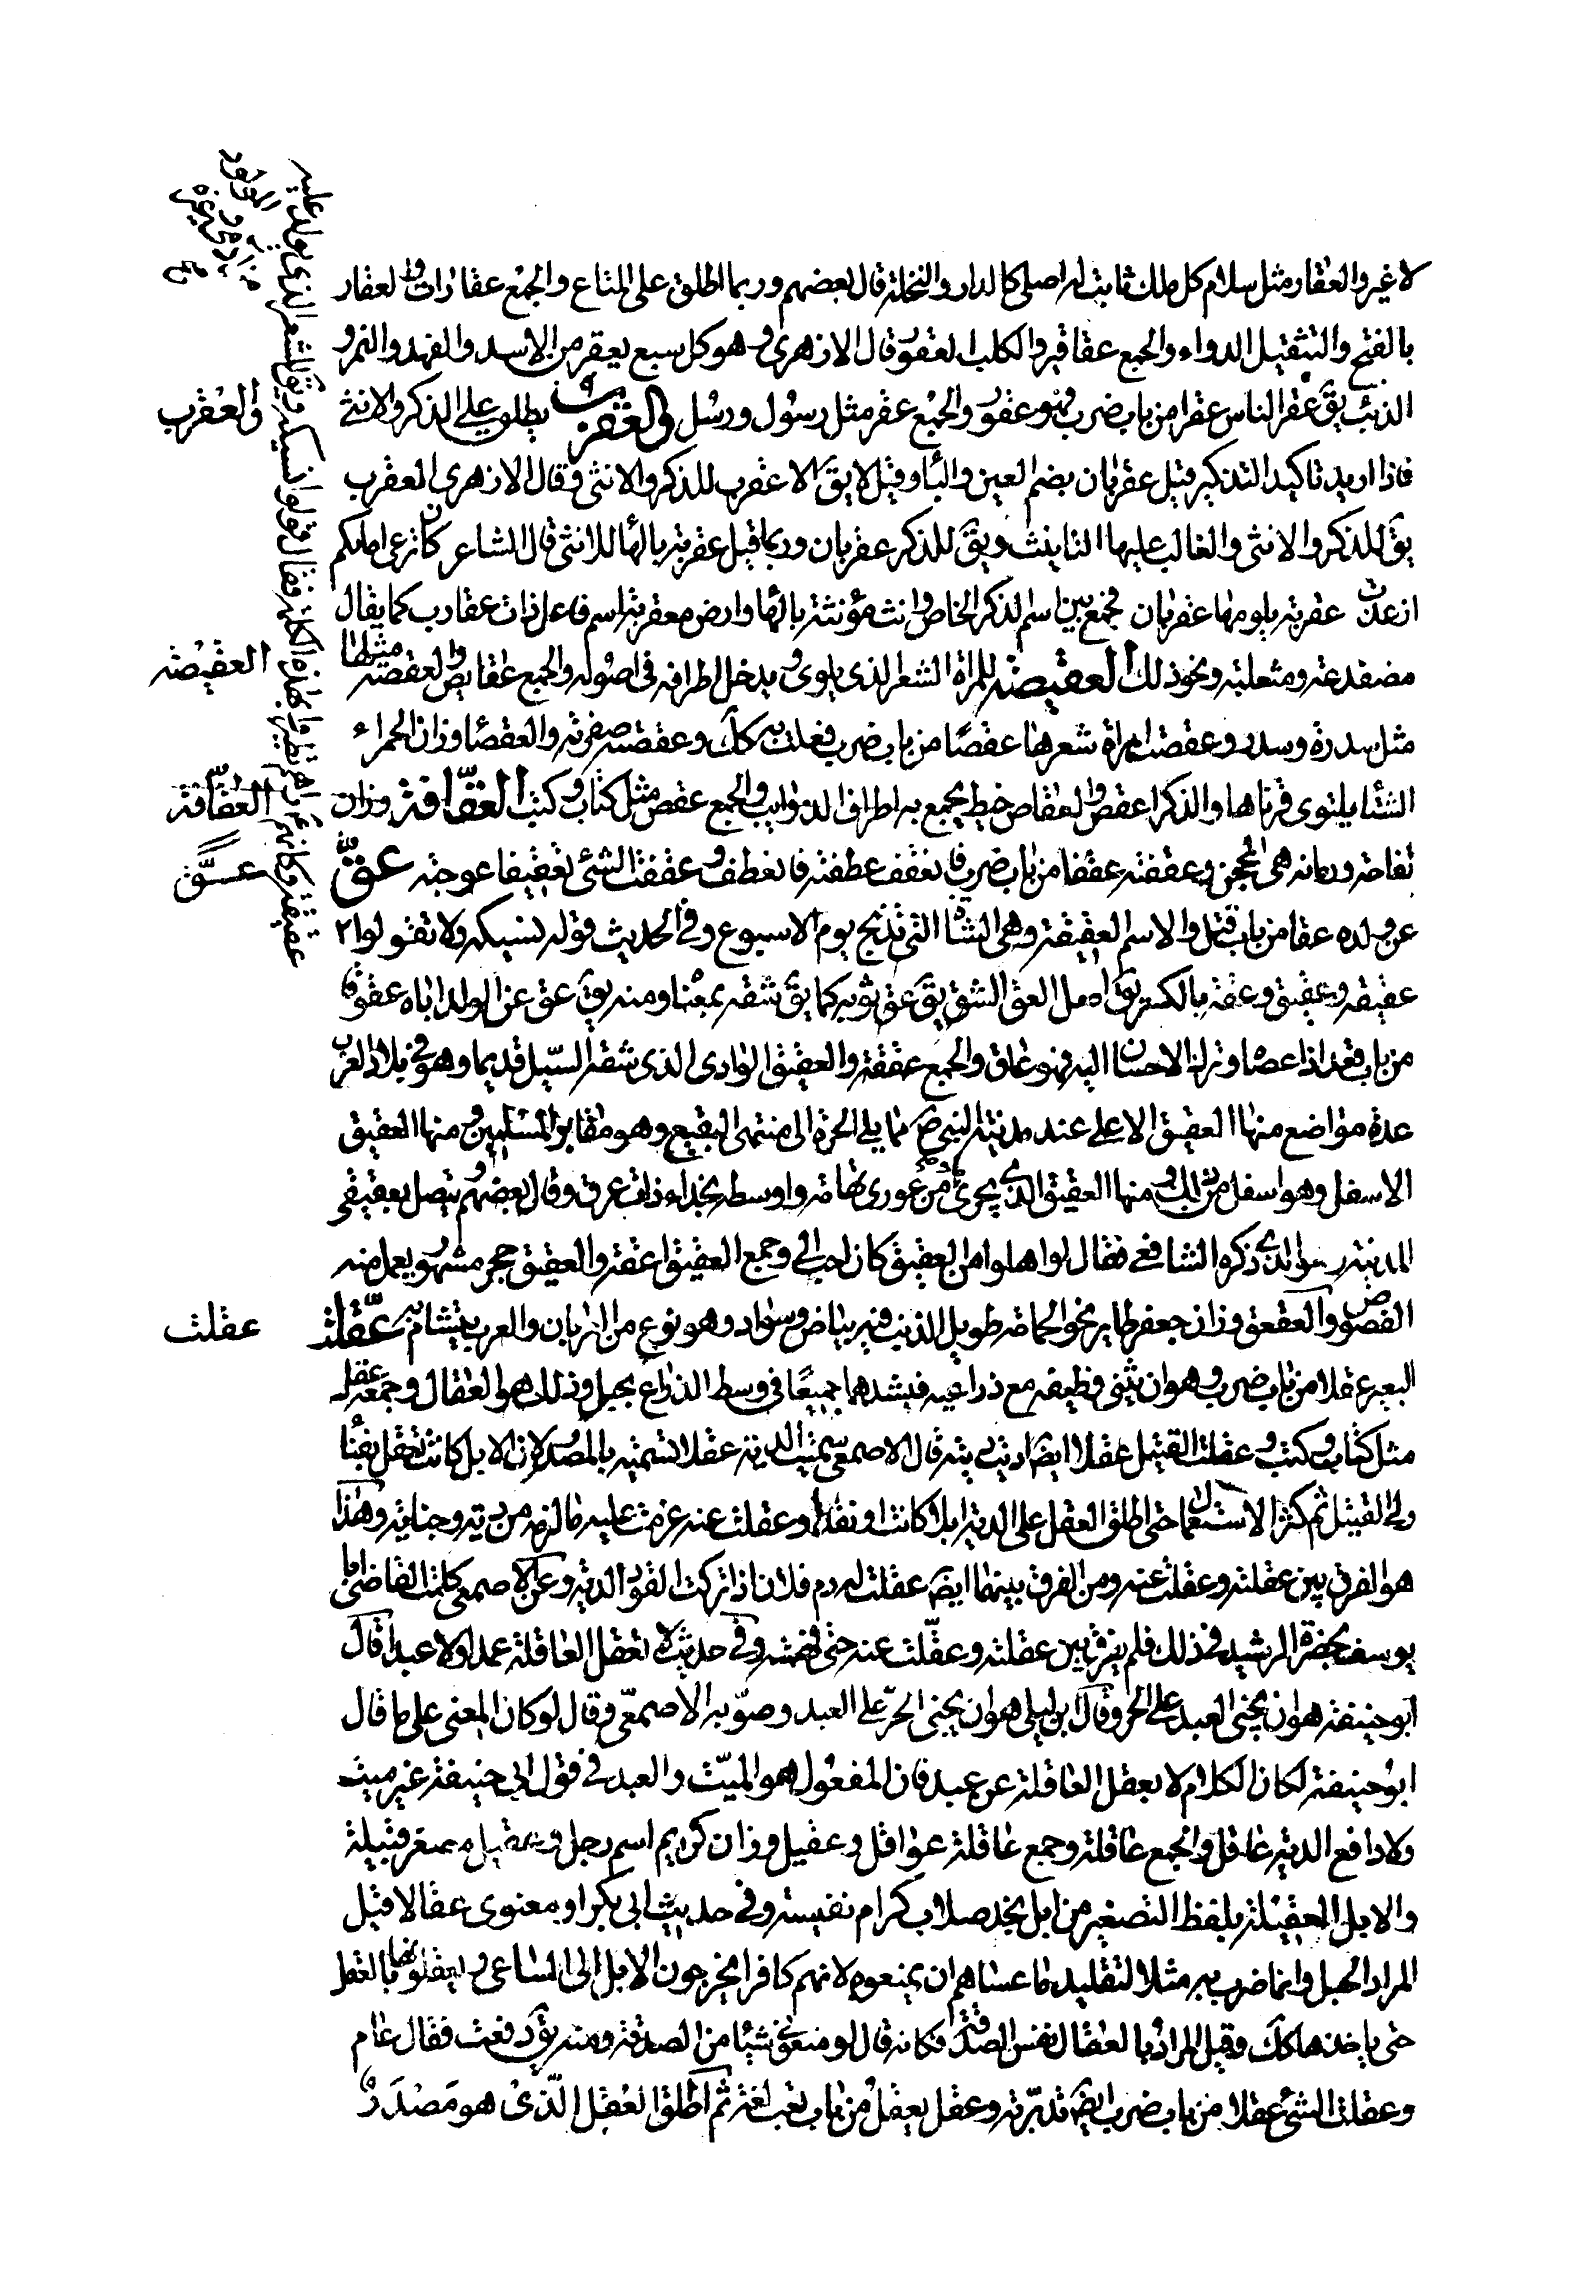 لا غير والعقار مثل سلام كل ملك ثابت له اصل كالدار والنخلة قال بعضهم وربما اطلق على المتاع والجمع عقارات والعقار
بالفتح والتثقيل الدواء والجمع عقاقير والكلب العقور قال الازهري وهو كل سبع يعقر من الاسد والفهد والنمر و
الذئب يق عقر الناس عقرا من باب ضرب فهو عقور والجمع عقر مثل رسول ورسل والعقرب يطلق على الذكر والانثى
فاذا اريد تاكيد التذكير قيل عقربان بضم العين والباء وقيل لا يق الا عقرب للذكر والانثى وقال الازهري العقرب
يق للذكر والانثى والغالب عليها التانيث ويق للذكر عقربان وربما قيل عقربة بالهاء للانثى قال الشاعر كان مرعى امكم
اذ غدت عقربة يكومها عقربان فجمع بين اسم الذكر الخاص وانث مؤنثة بالهاء وارض معقربة اسم فاعل ذات عقارب كما يقال
مضفدعة ومثعلبة ونحو ذلك العقيصة للمراة الشعر الذي يلوى و يدخل اطرافه في اصوله والجمع عقايص والعقصة مثلها
مثل سدرة وسدر وعقصت المراة شعرها عقصا من باب ضرب فعلت به كك وعقصته ضفرته والعقصاء وزان الحمراء
الشاة يلتوى قرناها والذكر اعقص والعقاص خيط يجمع به اطراف الذوايب والجمع عقص مثل كتاب وكتب العقافة وزان
تفاحة ورمانة هي المحجن وعقفته عقفا من باب ضرب فانعقف عطفته فانعطف وعقفت الشئ تعقيفا عوجته عق
عن ولده عقا من باب قتل والاسم العقيقة وهي الشاة التي تذبح يوم الاسبوع وفي الحديث قولوا نسيكة ولا تقولوا
عقيقة وعقيق وعقة بالكسر يق اصل العق الشق يق عق ثوبه كما يق شقه بمعناه ومنه يق عق عن الولد اباه عقوقا
من باب قعد اذا عصاه وترك الاحسان اليه فهو عاق والجمع عققة والعقيق الوادي الذي شقه السيل قديما وهو في بلاد العرب
عدة مواضع منها العقيق الاعلى عند مدينة النبي ص مما يلي الحرة الى منتهى البقيع وهو مقابر المسلمين و منها العقيق
الاسفل وهو اسفل من ذلك و منها العقيق الذي يجرى من غورى تهامة واوسطه بحذاء ذات عرق وقال بعضهم يتصل بعقيقى
المدينة وهو الذي ذكره الشافعي فقال لو اهلوا من العقيق كان احب الي وجمع العقيق اعقة والعقيق حجر مشهور يعمل منه
الفصوص والعقعق وزان جعفر طاير نحو الحمامة طويل الذنب فيه بياض وسواد وهو نوع من الغربان والعرب يتشام به عقلت
البعير عقلا من باب ضرب وهو ان يثنى وظيفه مع ذراعيه فيشدهما جميعا في وسط الذراع بحبل وذلك هو العقال وجمعه عقل
مثل كتاب وكتب و عقلت القتيل عقلا ايضا اديت ديته قال الاصمعي سميت الدية عقلا تسمية بالمصدر لان الابل كانت تعقل بفناء
ولي القتيل ثم كثر الاستعمال حتى اطلق العقل على الدية ابلا كانت او نقدا وعقلت عنه غرمت عليه ما لزمه من دية وجناية وهذا
هو الفرق بين عقلته وعقلت عنه ومن الفرق بينهما ايضا عقلت له دم فلان اذا تركت القود للدية وعن الاصمعي كلمت القاضي ابا
يوسف بحضرة الرشيد في ذلك فلم يفرق بين عقلته وعقلت عنه حتى فهمته وفي حديث لا تعقل العاقلة عمدا ولا عبدا قال
ابو حنيفة هو ان يجنى العبد على الحر وقال ابن ليلى هو ان يجنى الحر على العبد وصوبه الاصمعي وقال لو كان المعنى على ما قال
ابو حنيفة لكان الكلام لا يعقل العاقلة عن عبد فان المفعول هو الميت والعبد في قول ابي حنيفة غير ميت
ولا دافع الدية عاقل والجمع عاقلة وجمع عاقلة عواقل وعقيل وزان كريم اسم رجل وعقيل مصغر قبيلة
والابل العقيلية بلفظ التصغير من ابل نجد صلاب كرام نفيسة وفي حديث ابي بكر لو منعونى عقالا قيل
المراد الحبل وانما ضرب به مثلا لتقليل ما عساهم ان يمنعوه لانهم كانوا يخرجون الابل الى الساعي و يعقلونها بالعقل
حتى ياخذها كك وقيل المراد بالعقال نفس الصدقة فكانه قال لو منعوني شيئا من الصدقة ومنه يق دفعت فقال عام
وعقلت الشئ عقلا من باب ضرب ايضا تدبرته وعقل يعقل من باب تعب لغة ثم اطلق العقل الذي هو مصدر
والعقرب
العقيصة
العقافة
عق
عقلت